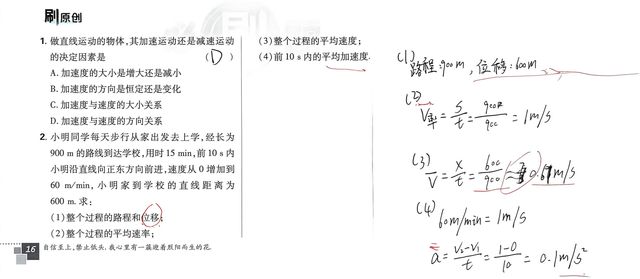 刷原创
1. 做直线运动的物体,其加速运动还是减速运动
的决定因素是 ( D )
A. 加速度的大小是增大还是减小
B. 加速度的方向是恒定还是变化
C. 加速度与速度的大小关系
D. 加速度与速度的方向关系
2. 小明同学每天步行从家出发去上学,经长为
900 m 的路线到达学校,用时 15 min,前 10 s 内
小明沿直线向正东方向前进,速度从 0 增加到
60 m/min, 小明家到学校的直线距离为
600 m. 求:
(1)整个过程的路程和位移;
(2)整个过程的平均速率;
16 自信至上,禁止低头,我心里有一簇迎着烈阳而生的花.
(3)整个过程的平均速度;
(4)前 10 s 内的平均加速度.
(1)
路程:900m, 位移:600m
(2)
V率 = s/t = 900m/900 = 1m/s
(3)
V = x/t = 600/900 ≈ 0.67m/s
(4)
60m/min = 1m/s
a = /t = 1-0/10 = 0.1m/s²